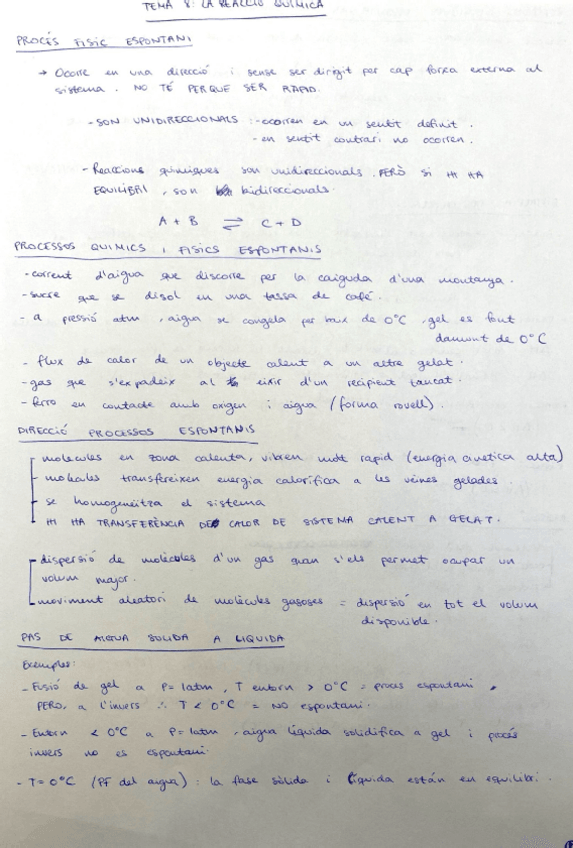 TEMA 8: LA REACCIÓ QUÍMICA
PROCÉS FISIC ESPONTANI
→ Ocorre en una direcció i sense ser dirigit per cap força externa al
sistema. NO TÉ PERQUE SER RAPID.
- SON UNIDIRECCIONALS : - ocorren en un sentit definit.
- en sentit contrari no ocorren.
- Reaccions químiques son unidireccionals. PERÒ SI HI HA
EQUILIBRI, son bidireccionals.
A + B ⇌ C + D
PROCESSOS QUIMICS i FISICS ESPONTANIS
- corrent d'aigua que discorre per la caiguda d'una montanya.
- sucre que se disol en una tassa de café.
- a pressió atm, aigua se congela per baix de 0°C, gel es fout
damunt de 0°C
- flux de calor de un objecte calent a un altre gelat.
- gas que s'expadeix al eixir d'un recipient tancat.
- ferro en contacte amb oxigen i aigua (forma rovell).
DIRECCIÓ PROCESSOS ESPONTANIS
molecules en zona calenta, vibren molt rapid (energia cinetica alta)
molecules transfereixen energia calorifica a les veines gelades.
se homogeneitza el sistema
HI HA TRANSFERÈNCIA DE CALOR DE SISTEMA CALENT A GELAT.
dispersió de molècules d'un gas quan s'els permet ocupar un
volum major.
moviment aleatori de molècules gasoses = dispersió en tot el volum
disponible.
PAS DE AIGUA SOLIDA A LIQUIDA
Exemples:
- Fusió de gel a P=1atm, T entorn > 0°C = proces espontani,
PERO, a l'invers ∴ T < 0°C = NO espontani.
- Entorn < 0°C a P=1atm, aigua líquida solidifica a gel i procés
invers no es espontani.
- T=0°C (PF del aigua) : la fase sòlida i líquida están en equilibri.